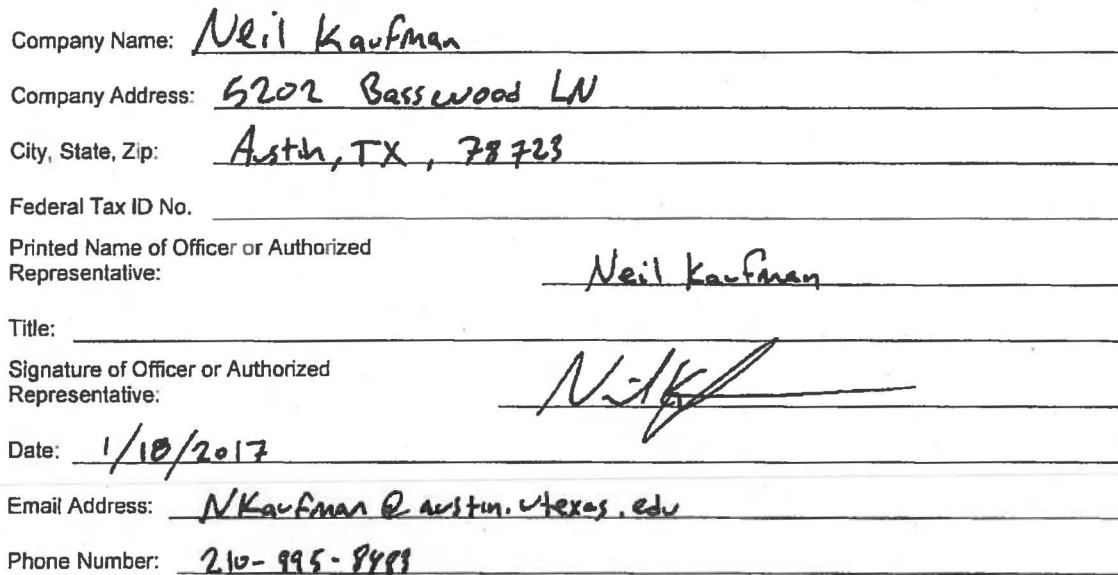 Company Name: Neil Kaufman
Company Address: 5202 Basswood LN
City, State, Zip: Austin, TX, 78723
Federal Tax ID No.
Printed Name of Officer or Authorized
Representative: Neil Kaufman
Title:
Signature of Officer or Authorized
Representative:
Date: 1/18/2017
Email Address: NKaufman@austin.utexas.edu
Phone Number: 210-